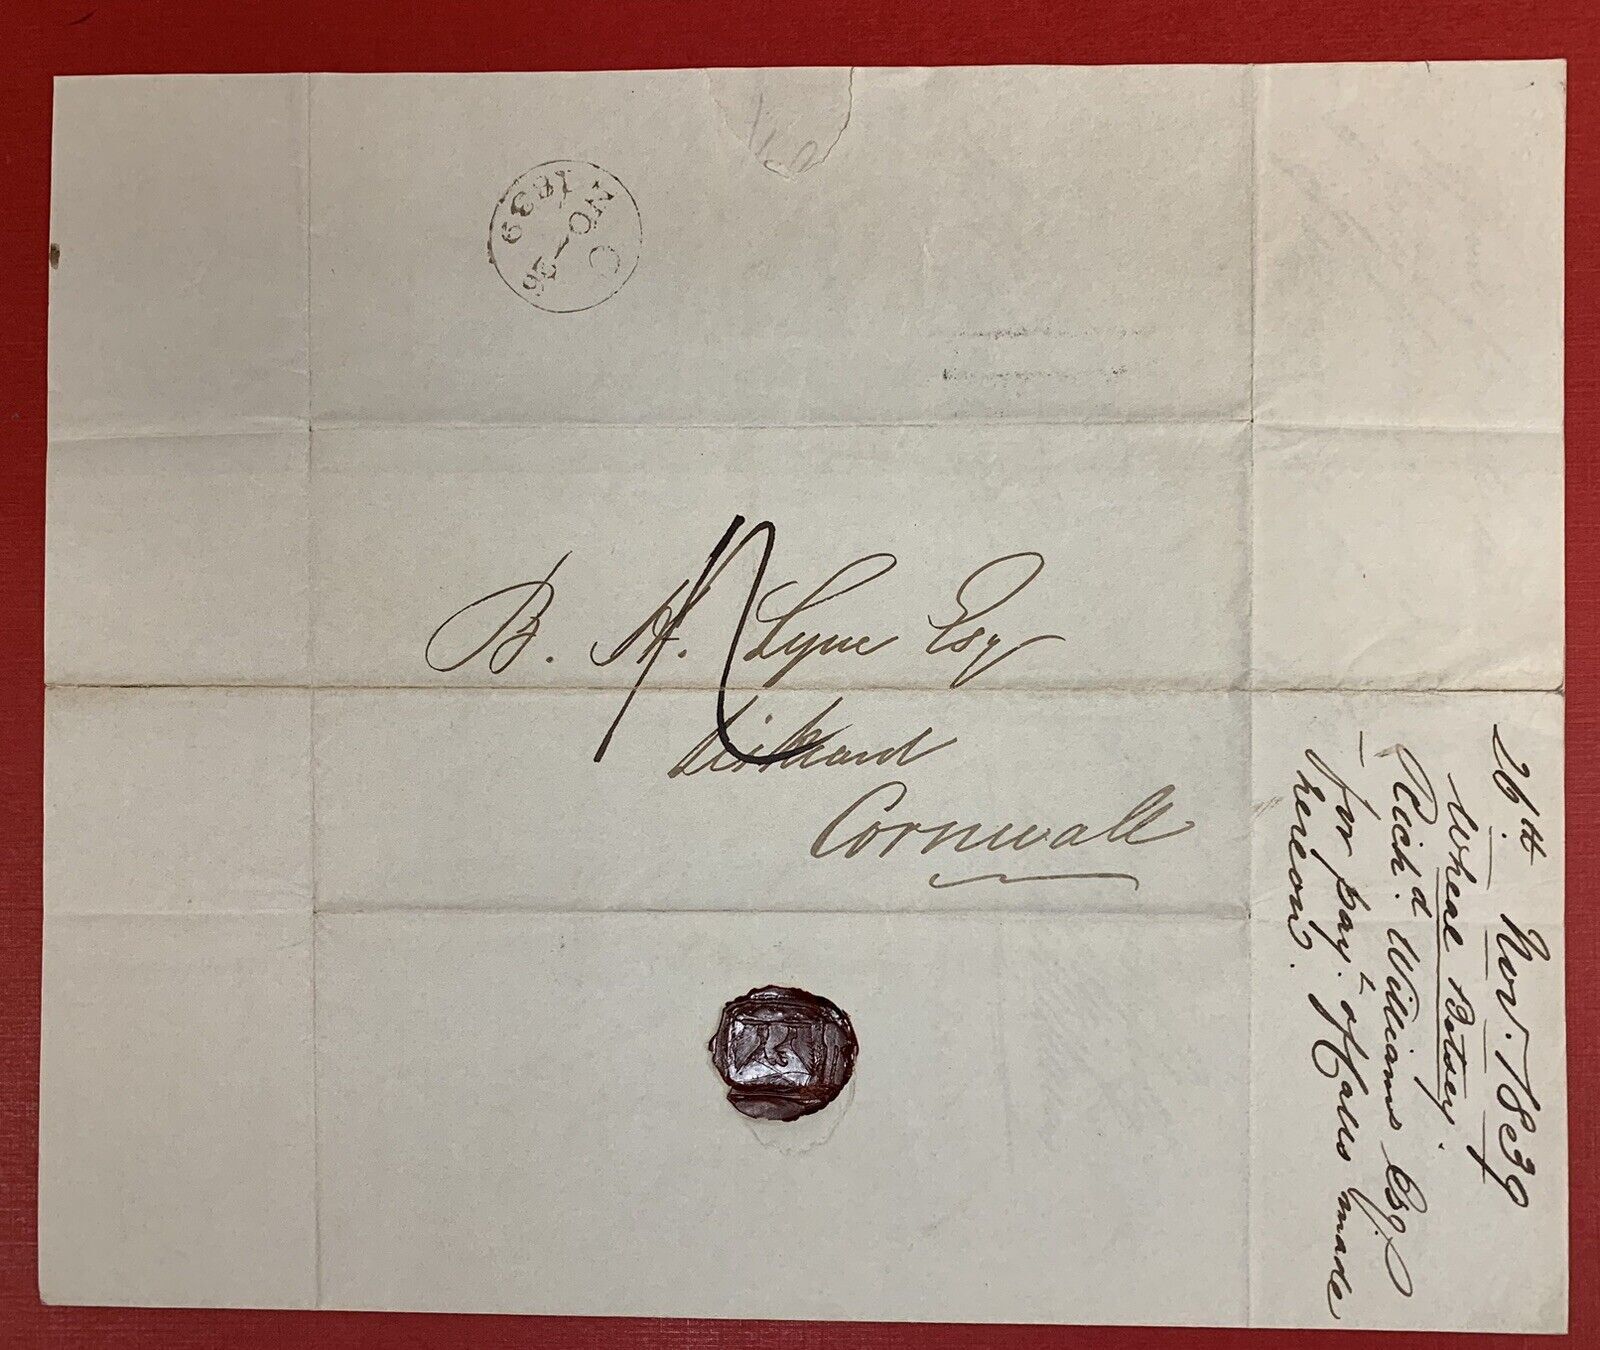 C
NO-26
1839
B. H. Lyne Esq
Liskeard
Cornwall
26th Nov. 1839
Wheal Betsey.
Rich.d Williams Esq.
- for pay.t of Calls made
hereon.